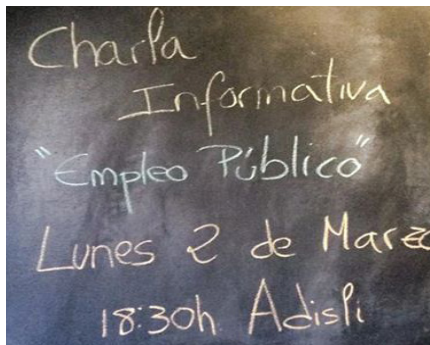 Charla
Informativa
"Empleo Público"
Lunes 2 de Marzo
18:30h Adisli